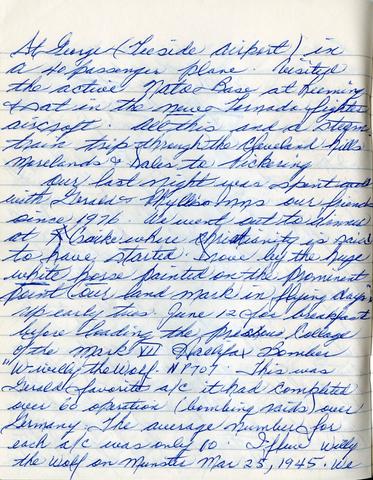 St George (Teeside airport) in
a 40 passenger plane. Visited
the active Nato Base at Leeming
& sat in the new Tornado fighter
aircraft. All this and a steam
train trip through the Cleveland Hills
Morelands & Dales to Pickering
Our last night was spent
with Gerald & Phyllis our friends
since 1976. We went out to dinner
at Craike where Christianity is said
to have started. Drove by the huge
white horse painted on the prominent
point (our land mark in flying days)
Up early Tues. June 12 for breakfast
before loading the precious Collage
of the Mark VII Halifax Bomber
"Willy the Wolf NP707. This was
Gerald favorite a/c it had completed
over 60 operation (bombing raids) over
Germany. The average number for
each a/c was only 10. I flew Willy
the Wolf on Munster Mar 25, 1945. We